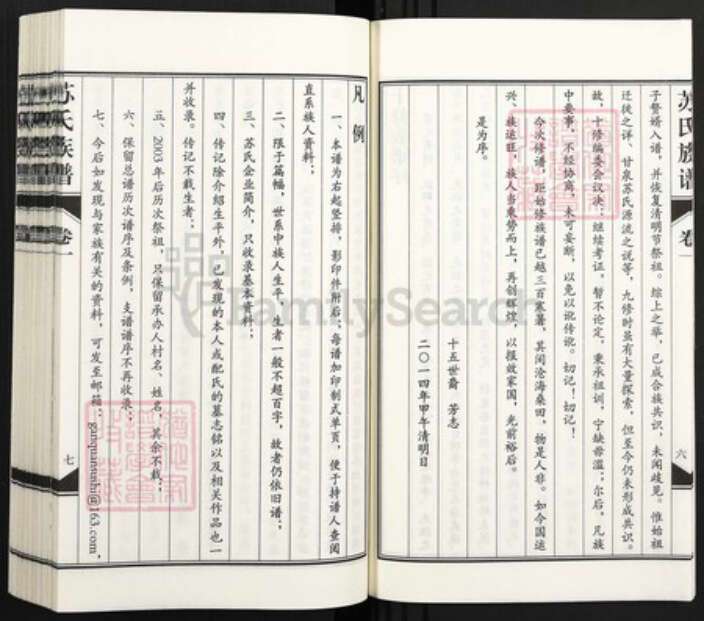 苏氏族谱
卷一
六
子赘婿入谱，并恢复清明节祭祖。综上之举，已成合族共识，未闻歧见。惟始祖
迁徙之详、甘泉苏氏源流之说等，九修时虽有大量探索，但至今仍未形成共识。
故，十修编委会议决：继续考证。暂不论定，秉承祖训，宁缺毋滥；尔后，凡族
中要事，不经协商，未可妄断，以免以讹传讹。切记！切记！
今次修谱，距始修族谱已越三百寒暑，其间沧海桑田，物是人非。如今国运
兴、族运旺，族人当乘势而上，再创辉煌，以报效家国，光前裕后。
是为序。
十五世裔 芳志
二〇一四年甲午清明日
凡例
一、本谱为右起竖排，影印件附后；每谱加印制式单页，便于持谱人查阅
直系族人资料；
二、限于篇幅，世系中族人生平，生者一般不超百字，故者仍依旧谱；
三、苏氏企业简介，只收录基本资料；
四、传记除介绍生平外，已发现的本人或配氏的墓志铭以及相关作品也一
并收录。传记不载生者；
五、2003年后历次祭祖，只保留承办人村名、姓名，其余不载；
六、保留总谱历次谱序及条例，支谱谱序不再收录；
七、今后如发现与家族有关的资料，可发至邮箱：ganquansushi@163.com，
苏氏族谱
卷一
七
FamilySearch